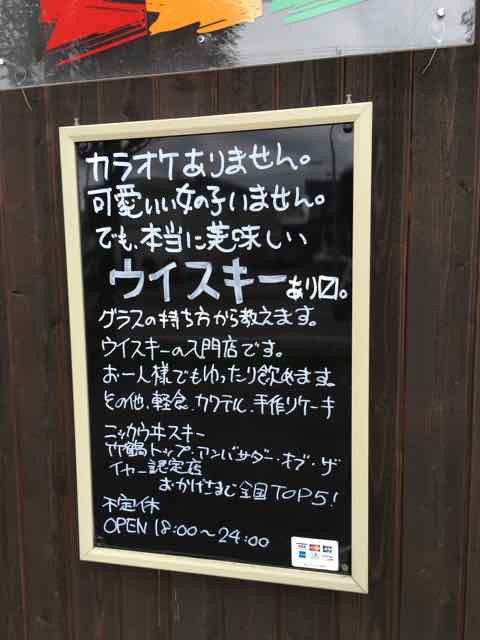 カラオケありません。
可愛いい女の子いません。
でも、本当に美味しい
ウイスキーあり〼。
グラスの持ち方から教えます。
ウイスキーの入門店です。
お一人様でもゆったり飲めます。
その他、軽食、カクテル、手作りケーキ
ニッカウヰスキー
竹鶴トップ・アンバサダー・オブ・ザ
イヤー認定店
おかげさまで全国TOP5!
不定休
OPEN 18:00〜24:00